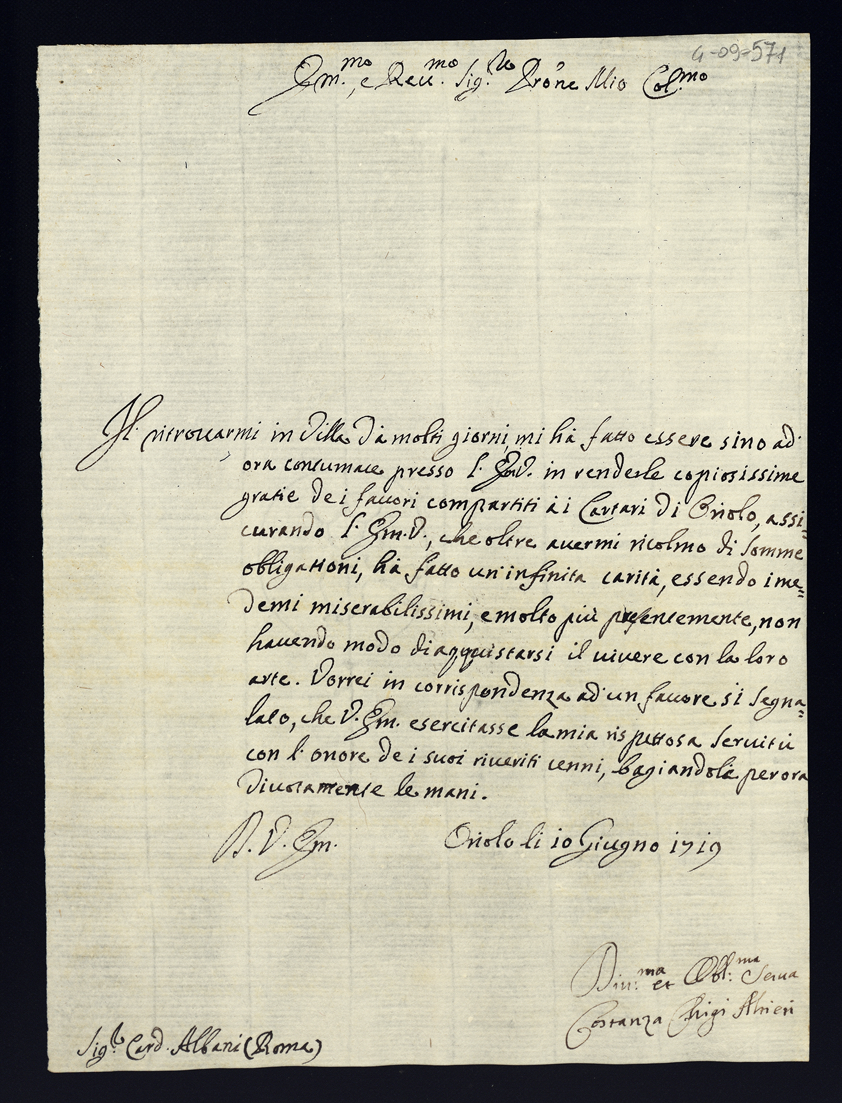 4-09-571
Em.mo, e Reu.mo Sig.re Prōne Mio Col.mo
Il ritrouarmi in Villa da molti giorni mi hà fatto essere sino ad
ora contumace presso l'Em.V. in renderle copiosissime
gratie de i fauori compartiti à i Cartari di Oriolo, assi=
curando l'Em.V., che oltre auermi ricolmo di somme
obligattoni, hà fatto un'infinita carità, essendo i me=
demi miserabilissimi, e molto più presentemente, non
hauendo modo di acquistarsi il uiuere con la loro
arte. Vorrei in corrispondenza ad un fauore si segna=
lato, che V. Em. esercitasse la mia rispettosa seruitù
con l'onore de i suoi riueriti cenni, bagiandole per ora
diuotamente le mani.
D. V. Em. Oriolo li 10 Giugno 1719
Diu.ma et Obl.ma Serua
Costanza Chigi Altieri
Sig.r Card. Albani (Roma)